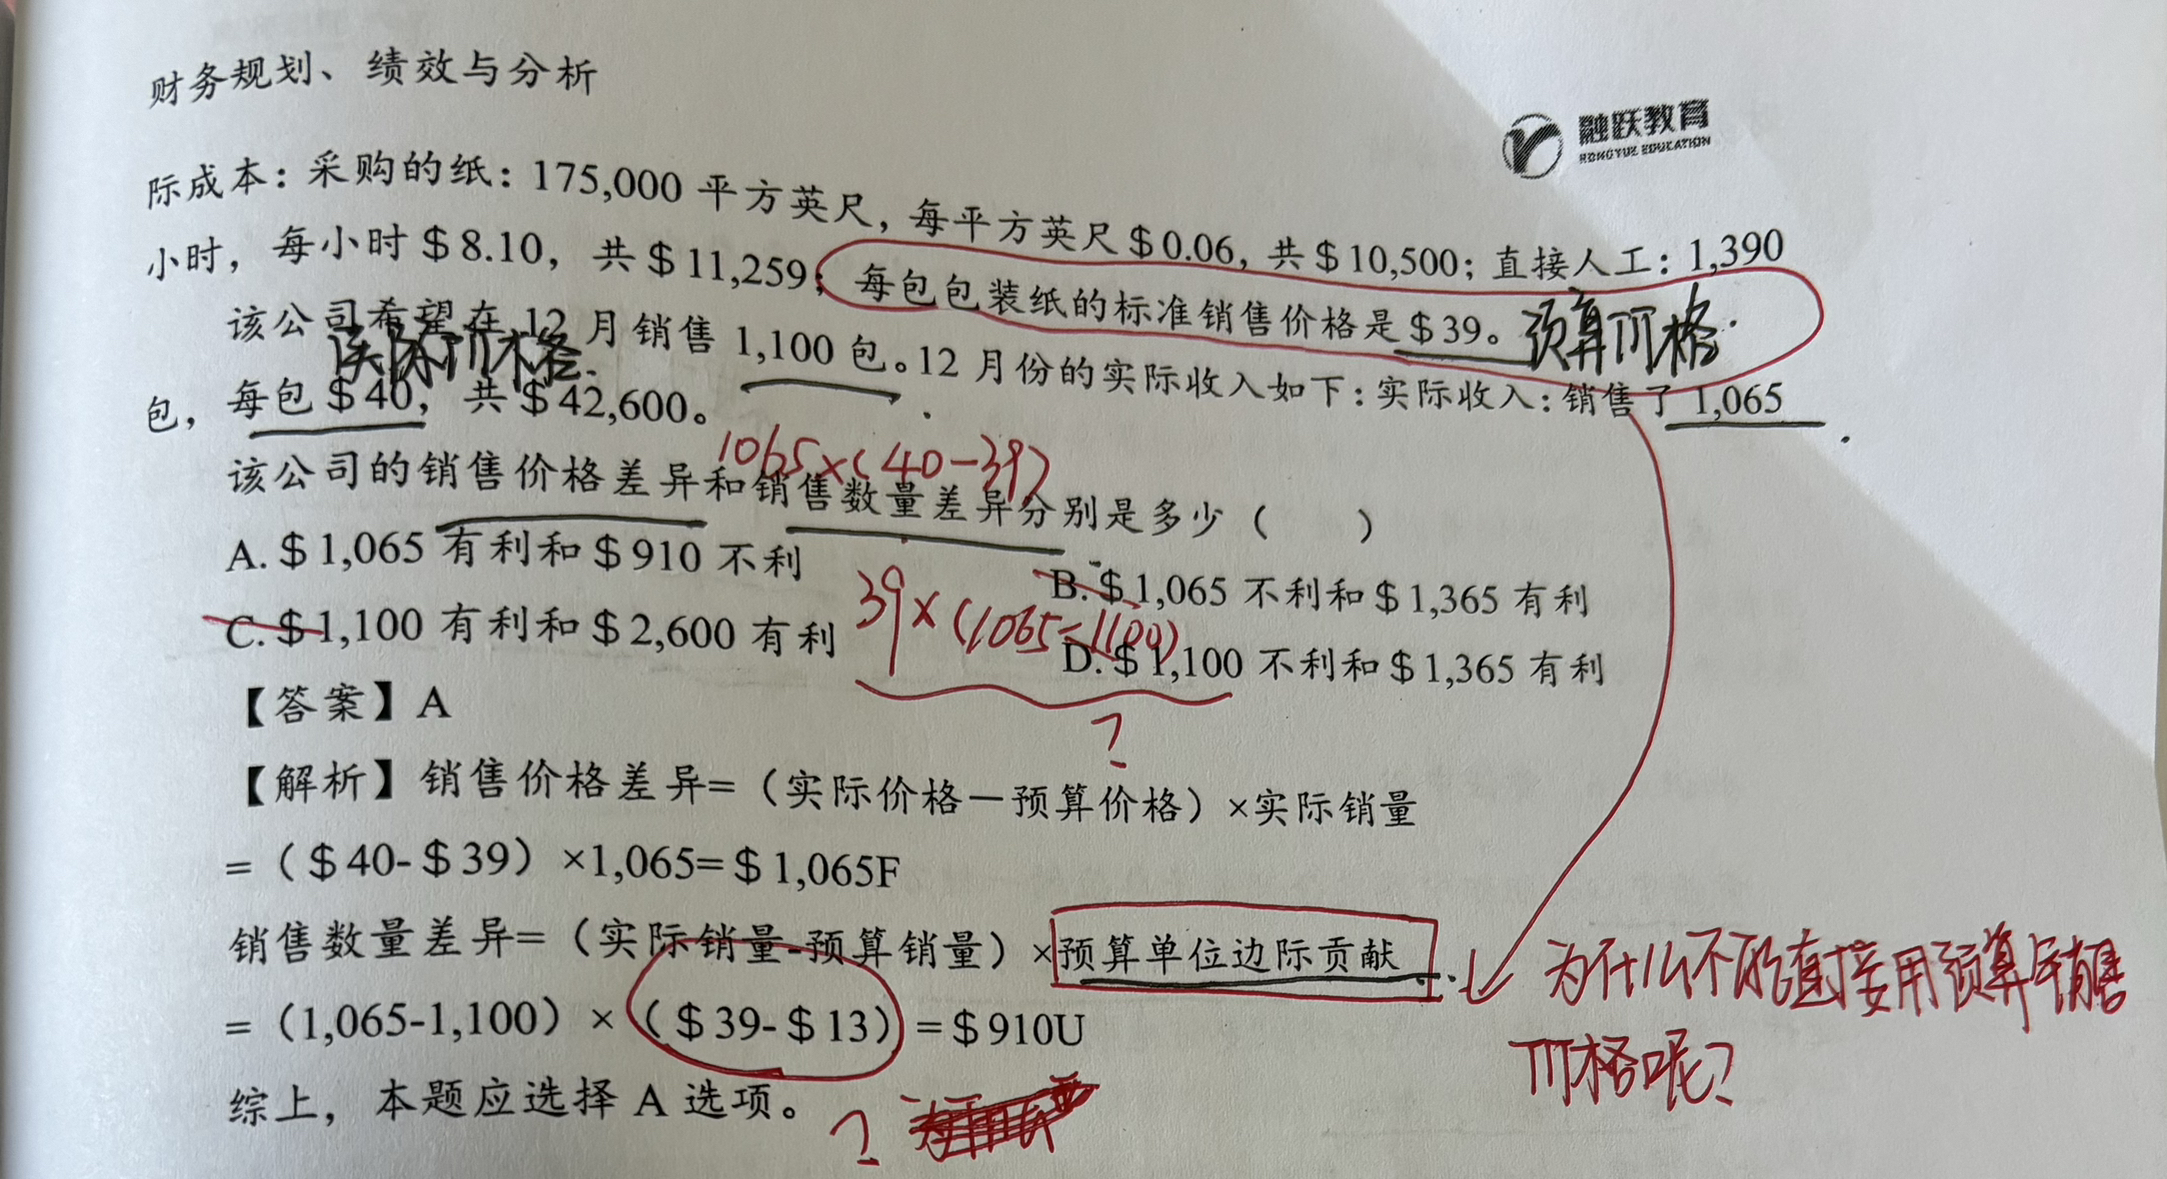 财务规划、绩效与分析
融跃教育
RONGYUE EDUCATION
际成本：采购的纸：175,000 平方英尺，每平方英尺＄0.06，共＄10,500；直接人工：1,390
小时，每小时＄8.10，共＄11,259；每包包装纸的标准销售价格是＄39。预算价格.
该公司希望在 12 月销售 1,100 包。12 月份的实际收入如下：实际收入：销售了 1,065
实际价格.
包，每包＄40，共＄42,600。
1065×(40-39)
该公司的销售价格差异和销售数量差异分别是多少（　　）
A.＄1,065 有利和＄910 不利
B.＄1,065 不利和＄1,365 有利
C.＄1,100 有利和＄2,600 有利
39×(1065-1100)
D.＄1,100 不利和＄1,365 有利
?
【答案】A
【解析】销售价格差异=（实际价格－预算价格）×实际销量
=（＄40-＄39）×1,065=＄1,065F
销售数量差异=（实际销量-预算销量）×预算单位边际贡献
为什么不能直接用预算销售
价格呢?
=（1,065-1,100）×（＄39-＄13）=＄910U
综上，本题应选择 A 选项。
?